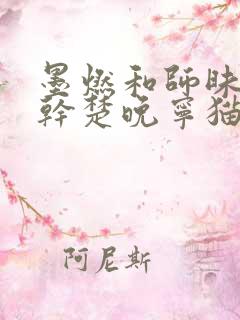 墨燃和師昧
幹楚晚寧猫
阿尼斯